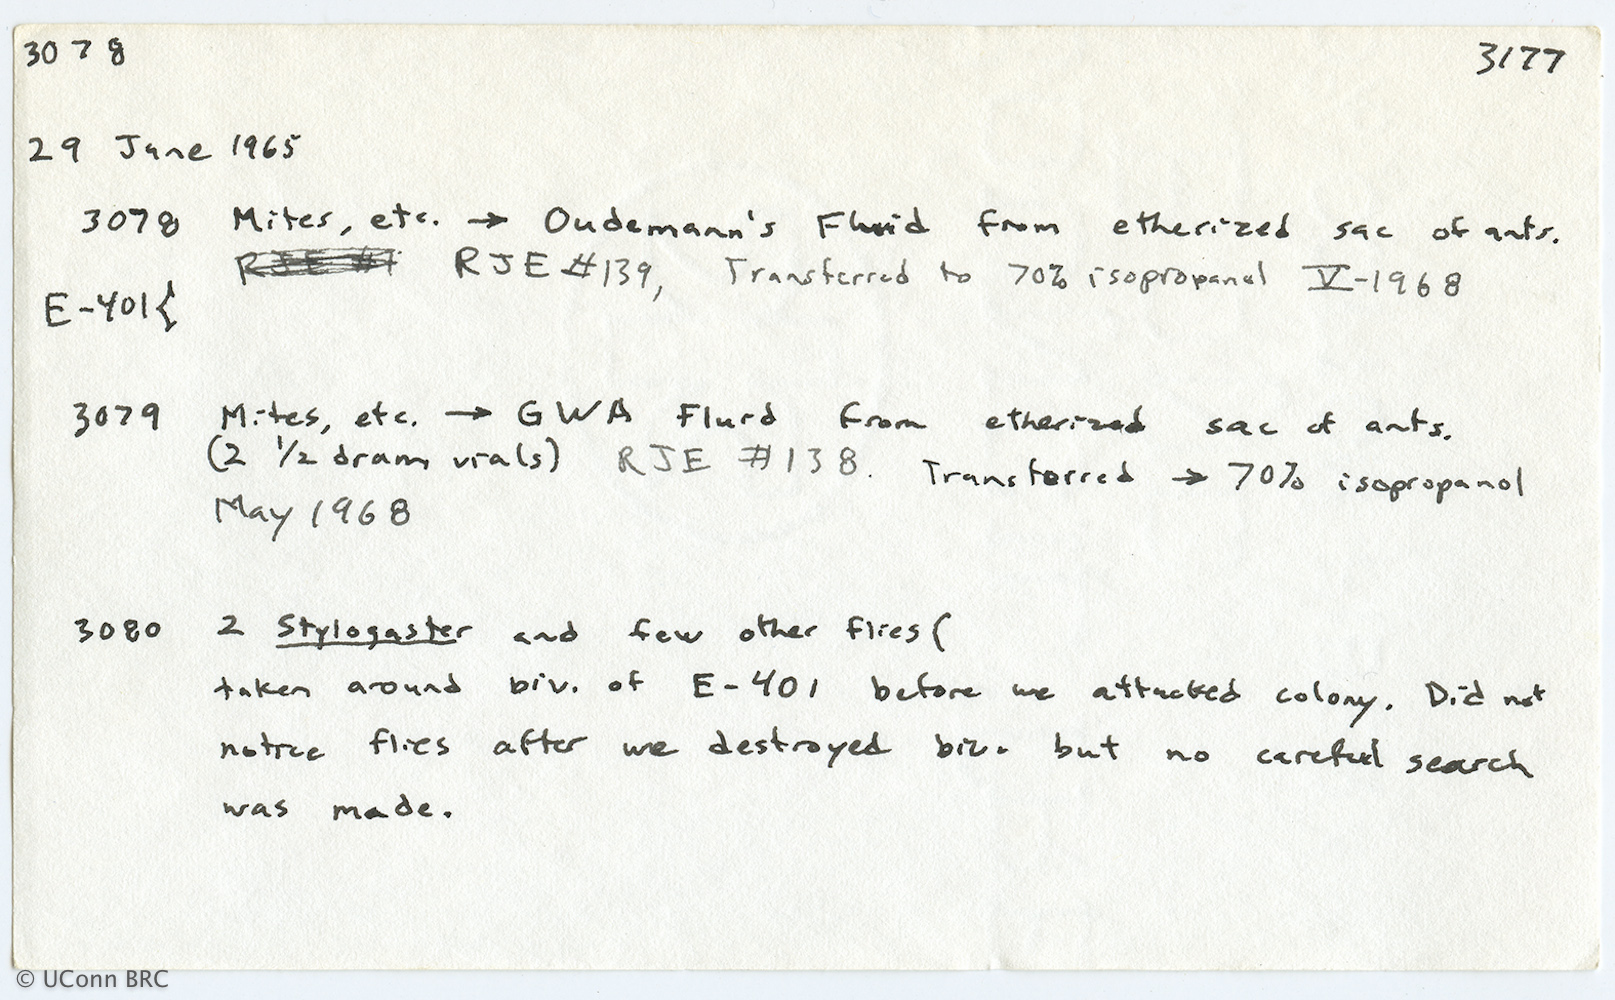 3078 3177
29 June 1965
3078 Mites, etc. → Oudemann's Fluid from etherized sac of ants.
RJE #1 RJE #139, Transferred to 70% isopropanol V-1968
E-401{
3079 Mites, etc. → GWA Fluid from etherized sac of ants.
(2 1/2 dram vials) RJE #138. Transferred → 70% isopropanol
May 1968
3080 2 Stylogaster and few other flies (
taken around biv. of E-401 before we attacked colony. Did not
notice flies after we destroyed biv. but no careful search
was made.
© UConn BRC